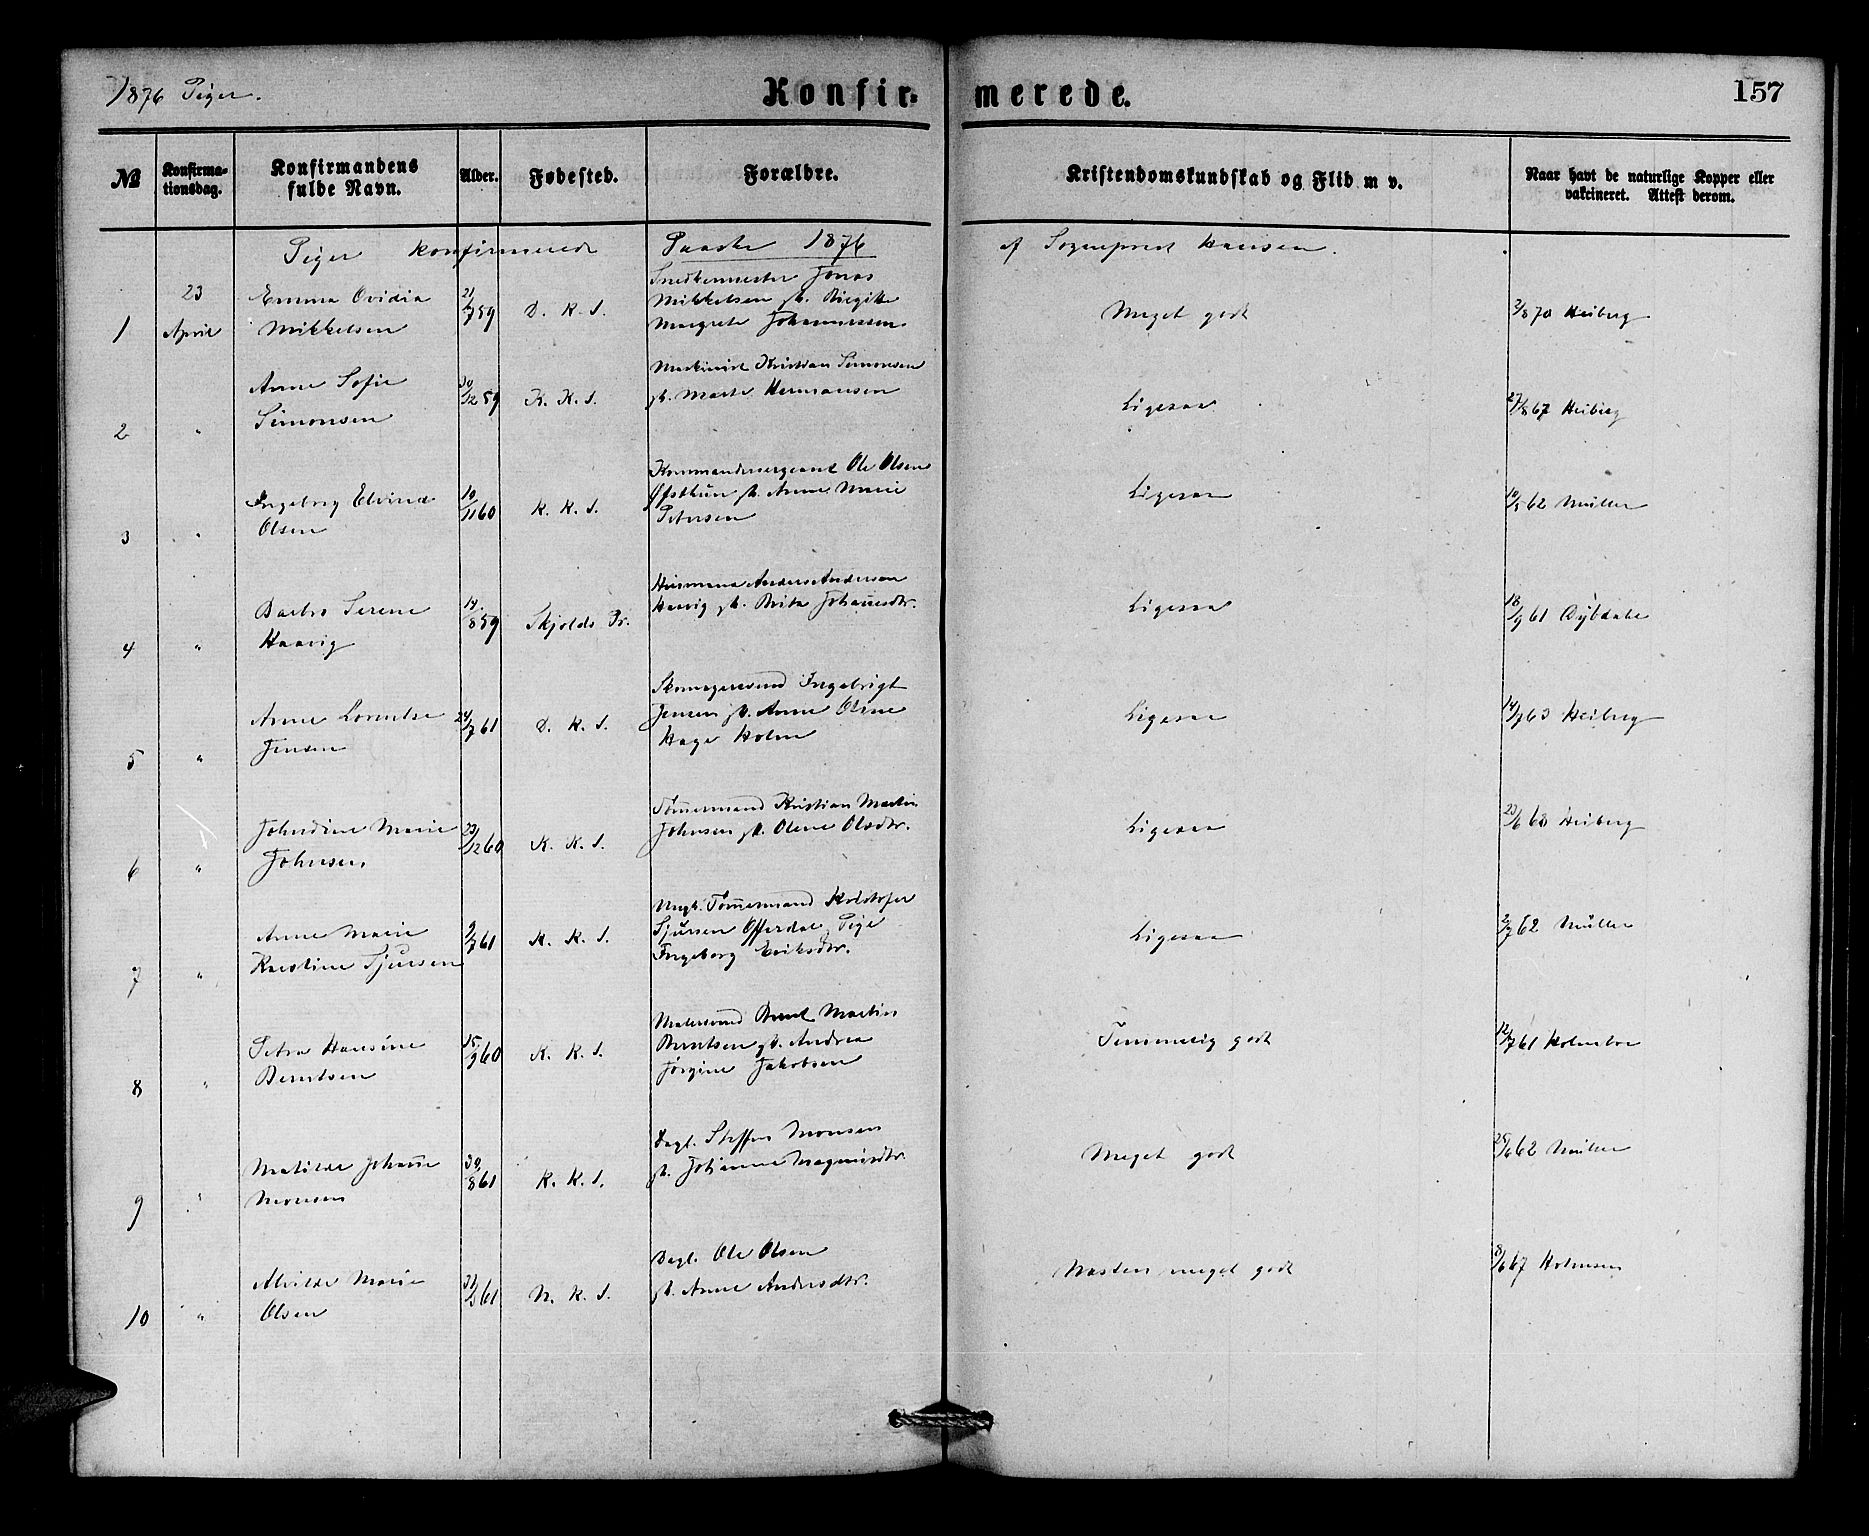 1876 Piger.
Konfir- merede.
157
No
Konfirma-
tionsdag.
Konfirmandens
fulde Navn.
Alder.
Fødested.
Forældre.
Kristendomskundskab og Flid m v.
Naar havt de naturlige Kopper eller
vakcineret. Attest derom.
Piger konfirmerede Paaske 1876 af Sognepræst Hansen.
1
23
April
Emma Ovidia
Mikkelsen
21/7 59
D. K. S.
Snedkermester Jonas
Mikkelsen h. Birgitte
Margrete Johannessen
Meget godt
2/8 70 Heiberg
2 "
Anne Sofie
Simonsen
30/12 59
K. K. S.
Maskinist Kristian Simonsen
h. Marte Hermansen
Ligesaa
27/8 67 Heiberg
3 "
Ingeborg Elvine
Olsen
10/11 60
K. K. S.
Kommandersergeant Ole Olsen
h. Anne Marie
Petersen
Ligesaa
10/5 62 Müller
4 "
Barbro Serene
Haavig
14/8 59
Skjolds Pr.
Husmand Anders Anderson
Haavig h. Brita Johansdtr.
Ligesaa
18/9 61 Dybdahl
5 "
Anne Lorentse
Jensen
24/7 61
D. K. S.
Skomagersvend Ingebrigt
Jensen h. Anne Oline
Hage Holm
Ligesaa
14/7 63 Heiberg
6 "
Johndine Marie
Johnsen
23/12 60
K. K. S.
Tømmermand Kristian Martin
Johnsen h. Olene Olsdtr.
Ligesaa
23/6 68 Heiberg
7 "
Anne Marie
Karstine Sjursen
9/7 61
K. K. S.
Ungk. Tømmermand Kristofer
Sjursen Offerdal, Pige
Ingeborg Eriksdtr.
Ligesaa
2/7 62 Müller
8 "
Petra Hansine
Berntsen
15/9 60
K. K. S.
Malersvend Bernt Martin
Berntsen h. Andrea
Jørgine Jakobsen
Temmelig godt
12/7 61 Holmboe
9 "
Matilde Johanne
Monsen
30/8 61
K. K. S.
Dagl. Steffen Monsen
h. Johanne Magnusdtr.
Meget godt
25/6 62 Müller
10 "
Alvilde Marie
Olsen
31/3 61
N. K. S.
Dagl. Ole Olsen
h. Anne Andersdtr.
Næsten meget godt
8/6 67 Holmsen